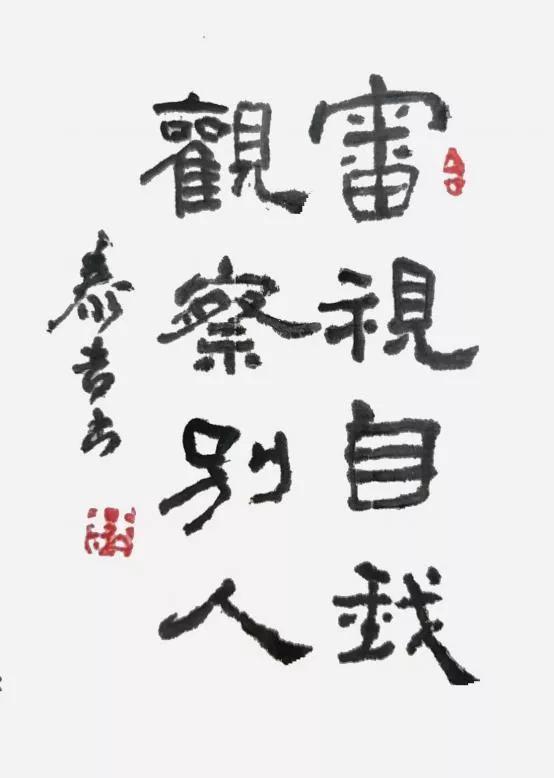 審視自我
觀察別人
泰吉书